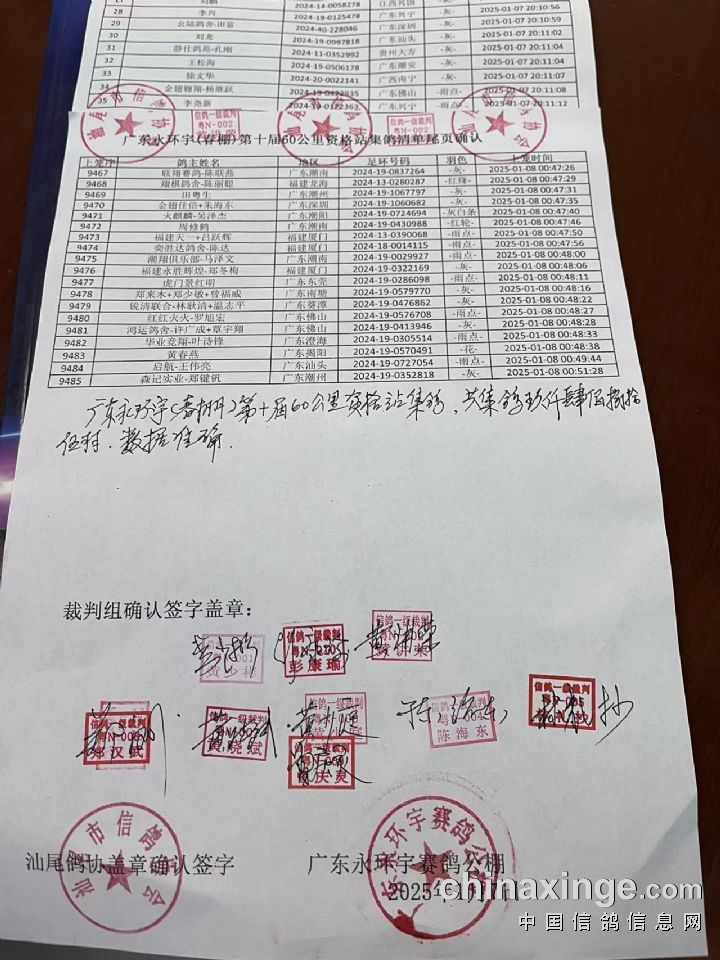 李兴 2024-19-0125478 广东兴宁 -灰- 2025-01-07 20:10:56
29 玄陆鸽舍-田富 2024-40-228046 广东深圳 -灰- 2025-01-07 20:10:59
30 刘龙 2024-19-0997818 广东汕头 -灰- 2025-01-07 20:11:02
31 静住鸽苑-孔刚 2024-11-0352992 贵州大方 -灰- 2025-01-07 20:11:04
32 王松海 2024-19-0506178 广东潮安 -灰- 2025-01-07 20:11:04
33 徐文华 2024-20-0022141 广西南宁 -灰- 2025-01-07 20:11:07
34 金翅翱翔-杨继跃 广东佛山 -雨点- 2025-01-07 20:11:08
35 李尧新 广东兴宁 -灰- 2025-01-07 20:11:12
汕尾市信鸽协会
信鸽一级裁判
粤N-002
黄讲荣
广东永环宇(春棚)第十届60公里资格站集鸽清单尾页确认
上笼序 鸽主姓名 地区 足环号码 羽色 上笼时间
9467 联翔赛鸽-陈联燕 广东潮南 2024-19-0837264 -灰- 2025-01-08 00:47:26
9468 翔棋鸽舍-陈丽聪 福建龙海 2024-13-0280287 -红绛- 2025-01-08 00:47:29
9469 田粤生 广东潮州 2024-19-1067797 -灰- 2025-01-08 00:47:31
9470 金翅佳信+朱海东 广东深圳 2024-19-1060682 -灰- 2025-01-08 00:47:35
9471 火麒麟-吴泽杰 广东潮阳 2024-19-0724694 -灰白条 2025-01-08 00:47:40
9472 周修鹤 广东潮南 2024-19-0430988 -红轮- 2025-01-08 00:47:46
9473 福建天一+吕跃辉 福建厦门 2024-13-0390068 -雨点- 2025-01-08 00:47:50
9474 娄胜达鸽舍-陈达 福建厦门 2024-18-0014115 -雨点- 2025-01-08 00:47:56
9475 潮翔俱乐部-马泽文 广东潮南 2024-19-0029927 -雨点- 2025-01-08 00:48:00
9476 福建永胜辉煌-郑冬梅 福建厦门 2024-19-0322169 -灰- 2025-01-08 00:48:06
9477 虎门景红明 广东东莞 2024-19-0286098 -雨点- 2025-01-08 00:48:11
9478 郑来木+郑少敏+曾福威 广东南塘 2024-19-0579770 -灰- 2025-01-08 00:48:16
9479 锐清联合-林耿清+温志平 广东葵潭 2024-19-0476862 -灰- 2025-01-08 00:48:22
9480 红红火火-罗旭宏 广东佛山 2024-19-0576708 -雨点- 2025-01-08 00:48:27
9481 鸿运鸽舍-许广成+覃宇翔 广东佛山 2024-19-0413946 -灰- 2025-01-08 00:48:28
9482 华业竞翔-叶诗锋 广东澄海 2024-19-0305514 -雨点- 2025-01-08 00:48:33
9483 黄春燕 广东揭阳 2024-19-0570491 -花- 2025-01-08 00:48:38
9484 启航-王伟亮 广东汕头 2024-19-0727054 -雨点- 2025-01-08 00:49:44
9485 森记实业-郑键钒 广东潮州 2024-19-0352818 -灰- 2025-01-08 00:51:28
广东永环宇(春棚)第十届60公里资格站集鸽,共集鸽玖仟肆佰捌拾
伍羽.数据准确.
裁判组确认签字盖章:
黄少彬 彭康瑜 黄讲荣
郑汉武 黄晓斌 陈海东
汕尾市信鸽协会
广东永环宇赛鸽公棚
汕尾鸽协盖章确认签字 广东永环宇赛鸽公棚
chinaxinge.com
中国信鸽信息网